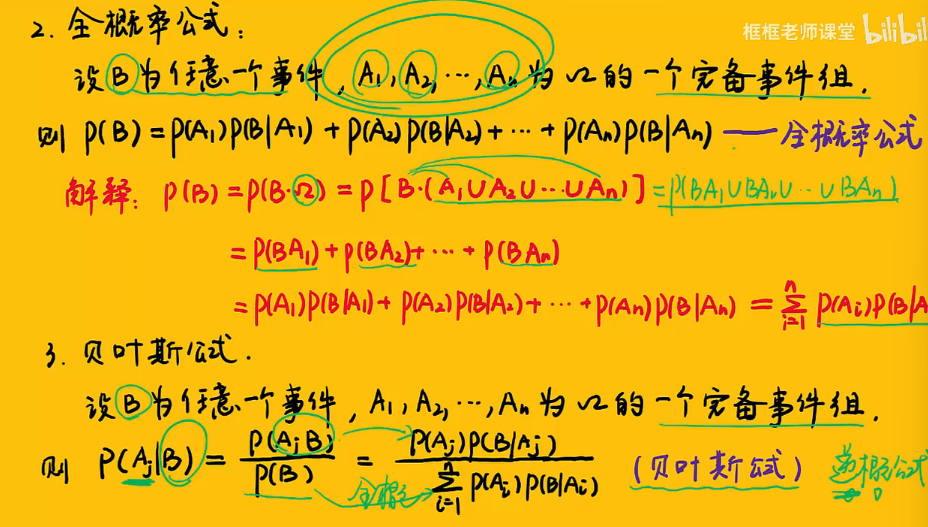 框框老师课堂 bilibil
2. 全概率公式:
设B为任意一个事件, A₁, A₂, ⋯, Aₙ 为Ω的一个完备事件组.
则 P(B) = P(A₁)P(B|A₁) + P(A₂)P(B|A₂) + ⋯ + P(Aₙ)P(B|Aₙ) —— 全概率公式
解释: P(B) = P(B·Ω) = P[B·(A₁∪A₂∪⋯∪Aₙ)] = P(BA₁∪BA₂∪⋯∪BAₙ)
= P(BA₁) + P(BA₂) + ⋯ + P(BAₙ)
= P(A₁)P(B|A₁) + P(A₂)P(B|A₂) + ⋯ + P(Aₙ)P(B|Aₙ) = ∑ⁿᵢ₌₁ P(Aᵢ)P(B|A
3. 贝叶斯公式.
设B为任意一个事件, A₁, A₂, ⋯, Aₙ 为Ω的一个完备事件组.
则 P(Aⱼ|B) = P(AⱼB) / P(B) = P(Aⱼ)P(B|Aⱼ) / ∑ⁿᵢ₌₁ P(Aᵢ)P(B|Aᵢ) (贝叶斯公式) 逆概公式
全概